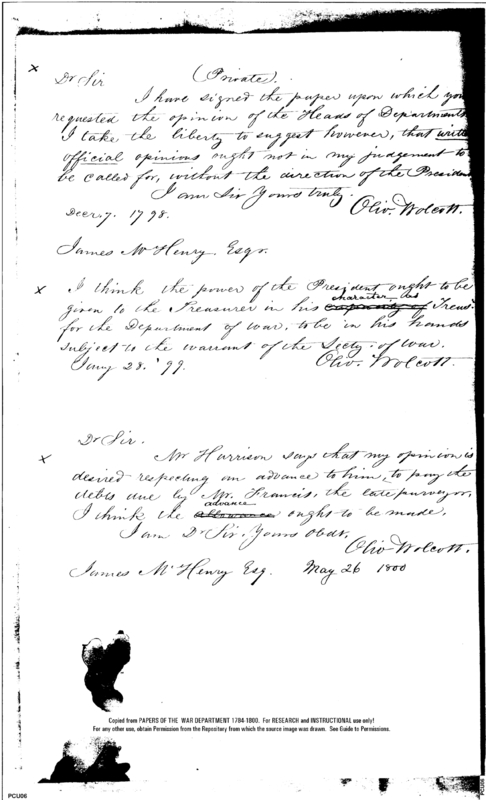 x
Dr Sir (Private).
I have signed the paper upon which you
requested the opinion of the Heads of Departments
I take the liberty to suggest however, that written
official opinions ought not in my judgement to
be called for, without the direction of the President
I am Sir Yours truly.
Decr 7. 1798. Oliv. Wolcott.
James McHenry Esqr.
x I think the power of the President ought to be
character as
given to the Treasurer in his capacity of Treasr.
for the Department of war, to be in his hands
subject to the warrant of the Secty. of war.
Jany 28. '99. Oliv. Wolcott.
Dr Sir.
x Mr Harrison says that my opinion is
desired respecting an advance to him, to pay the
debts due by Mr. Francis, the late purveyor,
advance
I think the allowance ought to be made.
I am Dr Sir. Yours obdt.
Oliv Wolcott.
James McHenry Esq. May 26 1800
Copied from PAPERS OF THE WAR DEPARTMENT 1784-1800. For RESEARCH and INSTRUCTIONAL use only!
For any other use, obtain Permission from the Repository from which the source image was drawn. See Guide to Permissions.
PCU06
PCU06